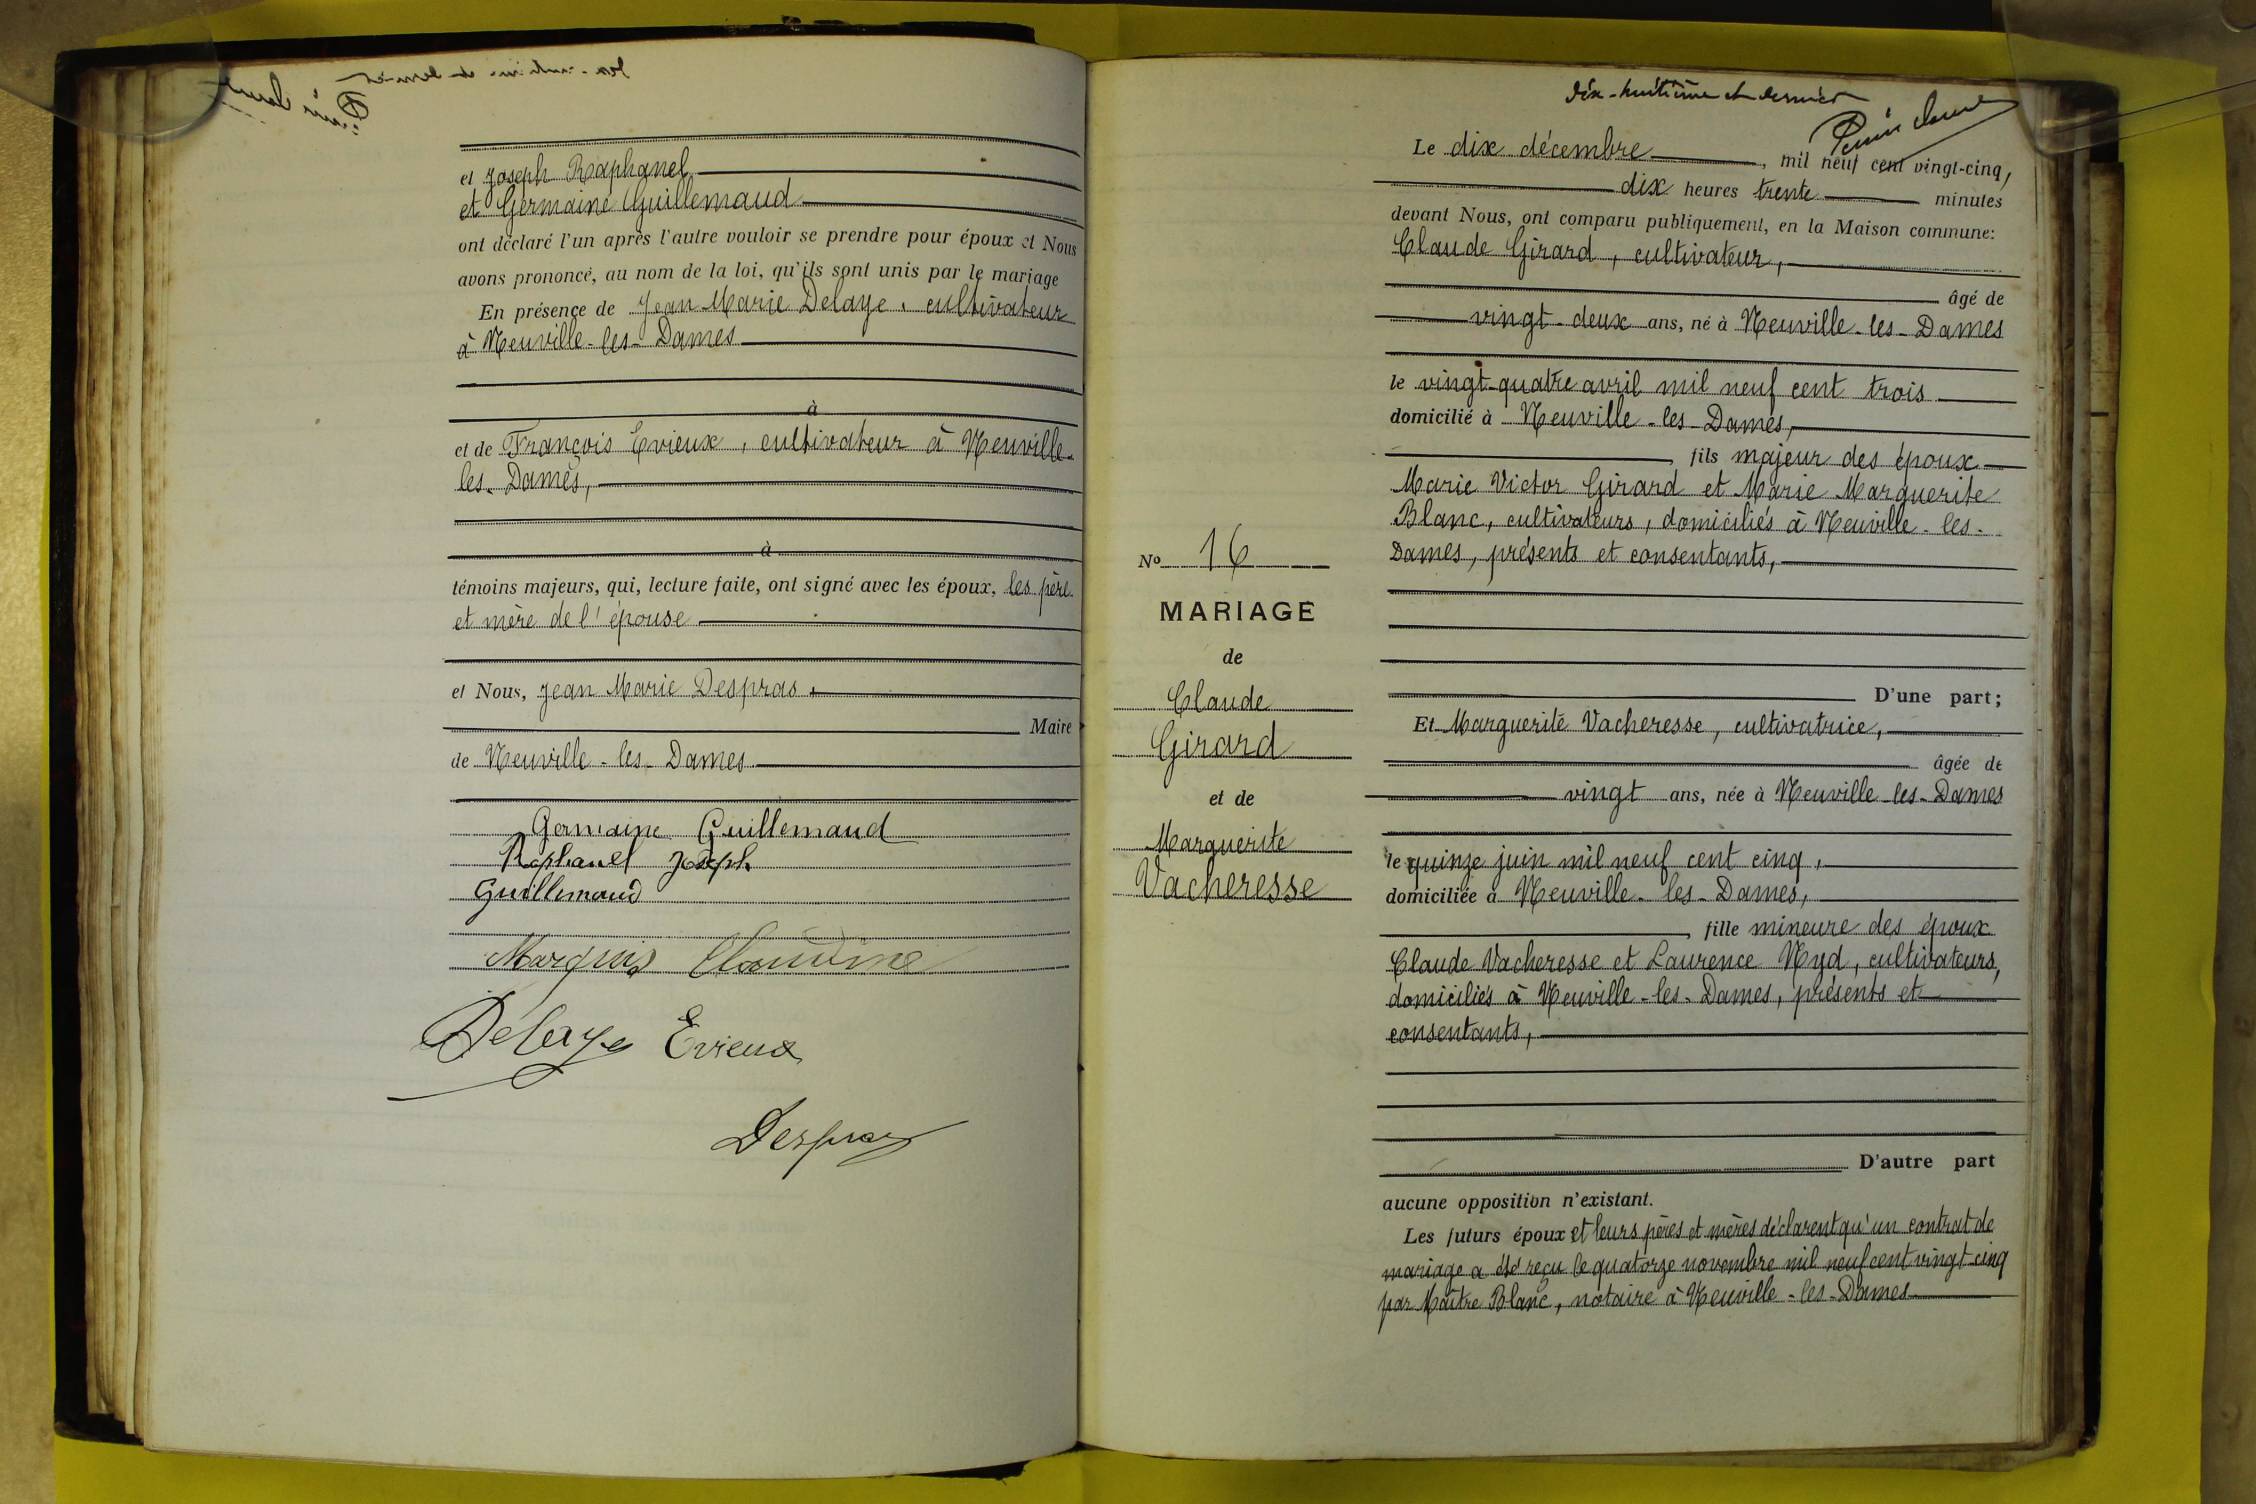 et Joseph Raphanel
et Germaine Guillemaud
ont déclaré l'un après l'autre vouloir se prendre pour époux et Nous
avons prononcé, au nom de la loi, qu'ils sont unis par le mariage
En présence de Jean Marie Delaye, cultivateur
à Neuville-les-Dames
à
et de François Evieux, cultivateur à Neuville-
les-Dames,
à
témoins majeurs, qui, lecture faite, ont signé avec les époux, les père
et mère de l'épouse
et Nous, Jean Marie Despras,
Maire
de Neuville-les-Dames
Germaine Guillemaud
Raphanel Joseph
Guillemaud
Marguis Claudine
Delaye Evieux
Despras
dix-huitième et dernier
Le dix décembre, mil neuf cent vingt-cinq,
dix heures trente minutes
devant Nous, ont comparu publiquement, en la Maison commune:
Claude Girard, cultivateur,
âgé de
vingt-deux ans, né à Neuville-les-Dames
le vingt-quatre avril mil neuf cent trois
domicilié à Neuville-les-Dames,
, fils majeur des époux
Marie Victor Girard et Marie Marguerite
Blanc, cultivateurs, domiciliés à Neuville-les-
Dames, présents et consentants,
No 16
MARIAGE
de
Claude
Girard
et de
Marguerite
Vacheresse
D'une part;
Et Marguerite Vacheresse, cultivatrice,
âgée de
vingt ans, née à Neuville-les-Dames
le quinze juin mil neuf cent cinq,
domiciliée à Neuville-les-Dames,
, fille mineure des époux
Claude Vacheresse et Laurence Nyd, cultivateurs,
domiciliés à Neuville-les-Dames, présents et
consentants,
D'autre part
aucune opposition n'existant.
Les futurs époux et leurs pères et mères déclarent qu'un contrat de
mariage a été reçu le quatorze novembre mil neuf cent vingt-cinq
par Maître Blanc, notaire à Neuville-les-Dames